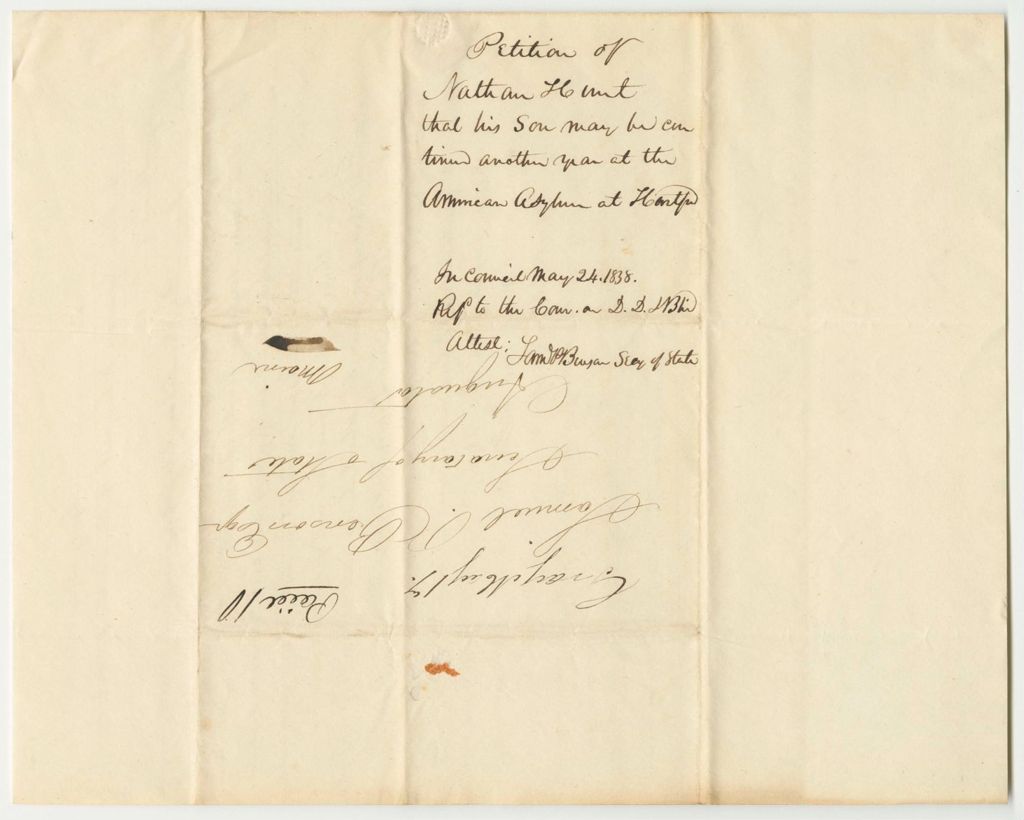 Petition of
Nathan Hunt
that his Son may be con
tinued another year at the
American Asylum at Hartford
In Council May 24. 1838.
Ref to the Com. on D. D. & Blind
Attest: Saml P Benson Secy of State
Gray May 17.
Samuel P. Benson Esqr
Secretary of State
Augusta
Maine